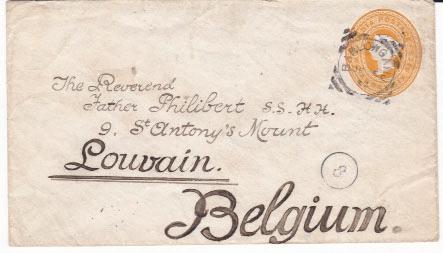 The Reverend
Father Philibert S.S.H.H.
9. St Antony's Mount
Louvain.
Belgium.